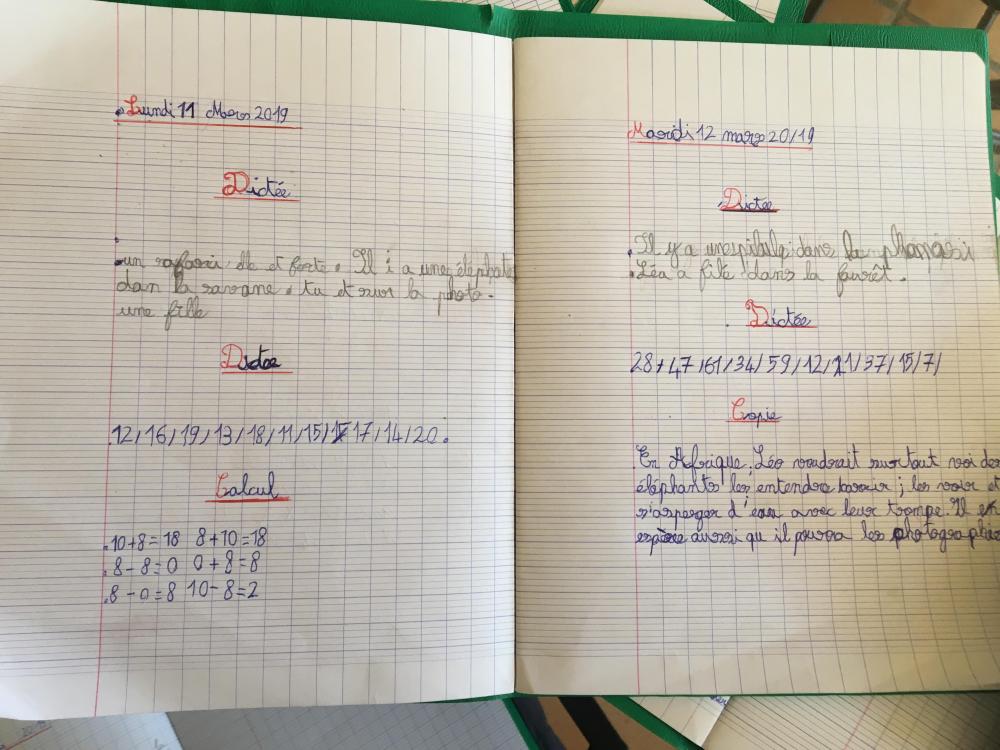 Lundi 11 Mars 2019
Dictée
un safari, elle et forte. Il i a une éléphate
dan la savane. tu et sur la photo.
une fille
Dictee
12/16/19/13/18/11/15/17/14/20.
Calcul
10+8=18 8+10=18
8-8=0 0+8=8
8-0=8 10-8=2
Mardi 12 mars 20/19
Dictée
Il y a une pilule dans la
Léa a filé dans la faurêt.
Dictée
28/47/61/34/59/12/21/37/15/7/
Copie
En Afrique, Léo voudrait surtout voi des
éléphants les entendre barrir; les voir et
s'asperger d'eau avec leur trompe. Il en
espère aussi qu il pourra les photographier